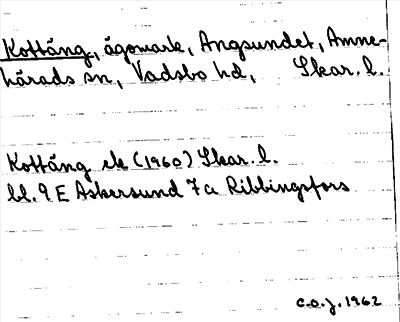 Kottäng, ägomark, Angsundet, Amne-
härads sn, Vadsbo hd, Skar. l.
Kottäng ek (1960) Skar. l.
bl. 9 E Askersund 7a Ribbingsfors
C.O.J. 1962